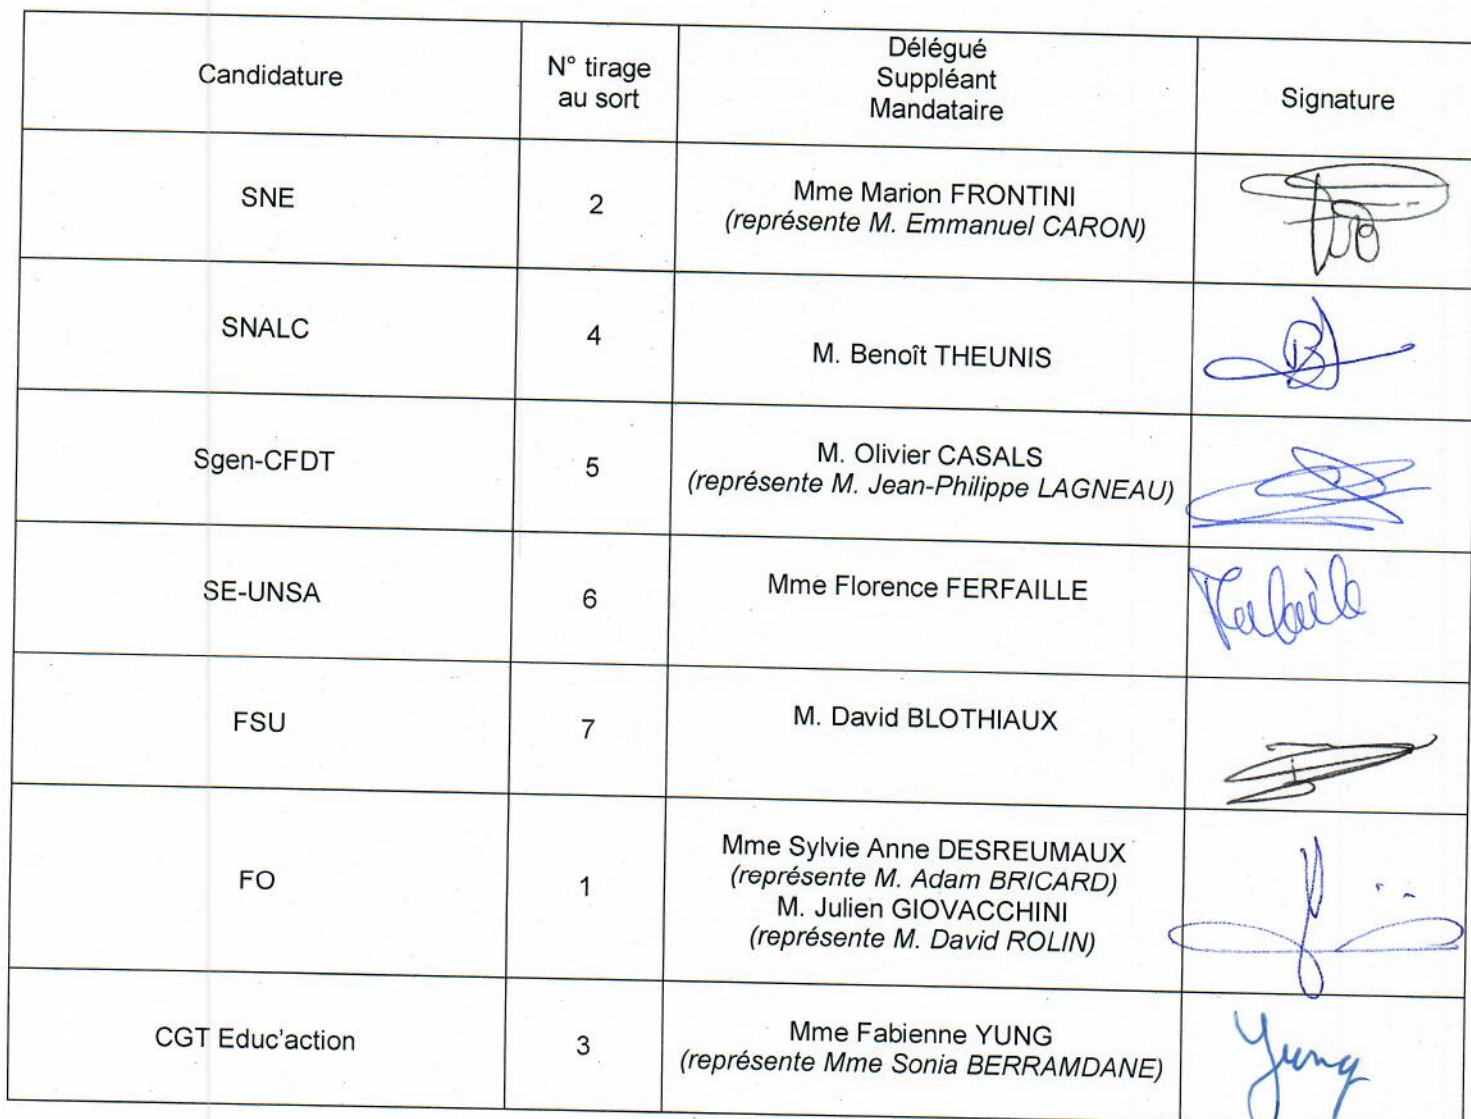 Candidature
N° tirage
au sort
Délégué
Suppléant
Mandataire
Signature
SNE
2
Mme Marion FRONTINI
(représente M. Emmanuel CARON)
SNALC
4
M. Benoît THEUNIS
Sgen-CFDT
5
M. Olivier CASALS
(représente M. Jean-Philippe LAGNEAU)
SE-UNSA
6
Mme Florence FERFAILLE
FSU
7
M. David BLOTHIAUX
FO
1
Mme Sylvie Anne DESREUMAUX
(représente M. Adam BRICARD)
M. Julien GIOVACCHINI
(représente M. David ROLIN)
CGT Educ'action
3
Mme Fabienne YUNG
(représente Mme Sonia BERRAMDANE)
Yung